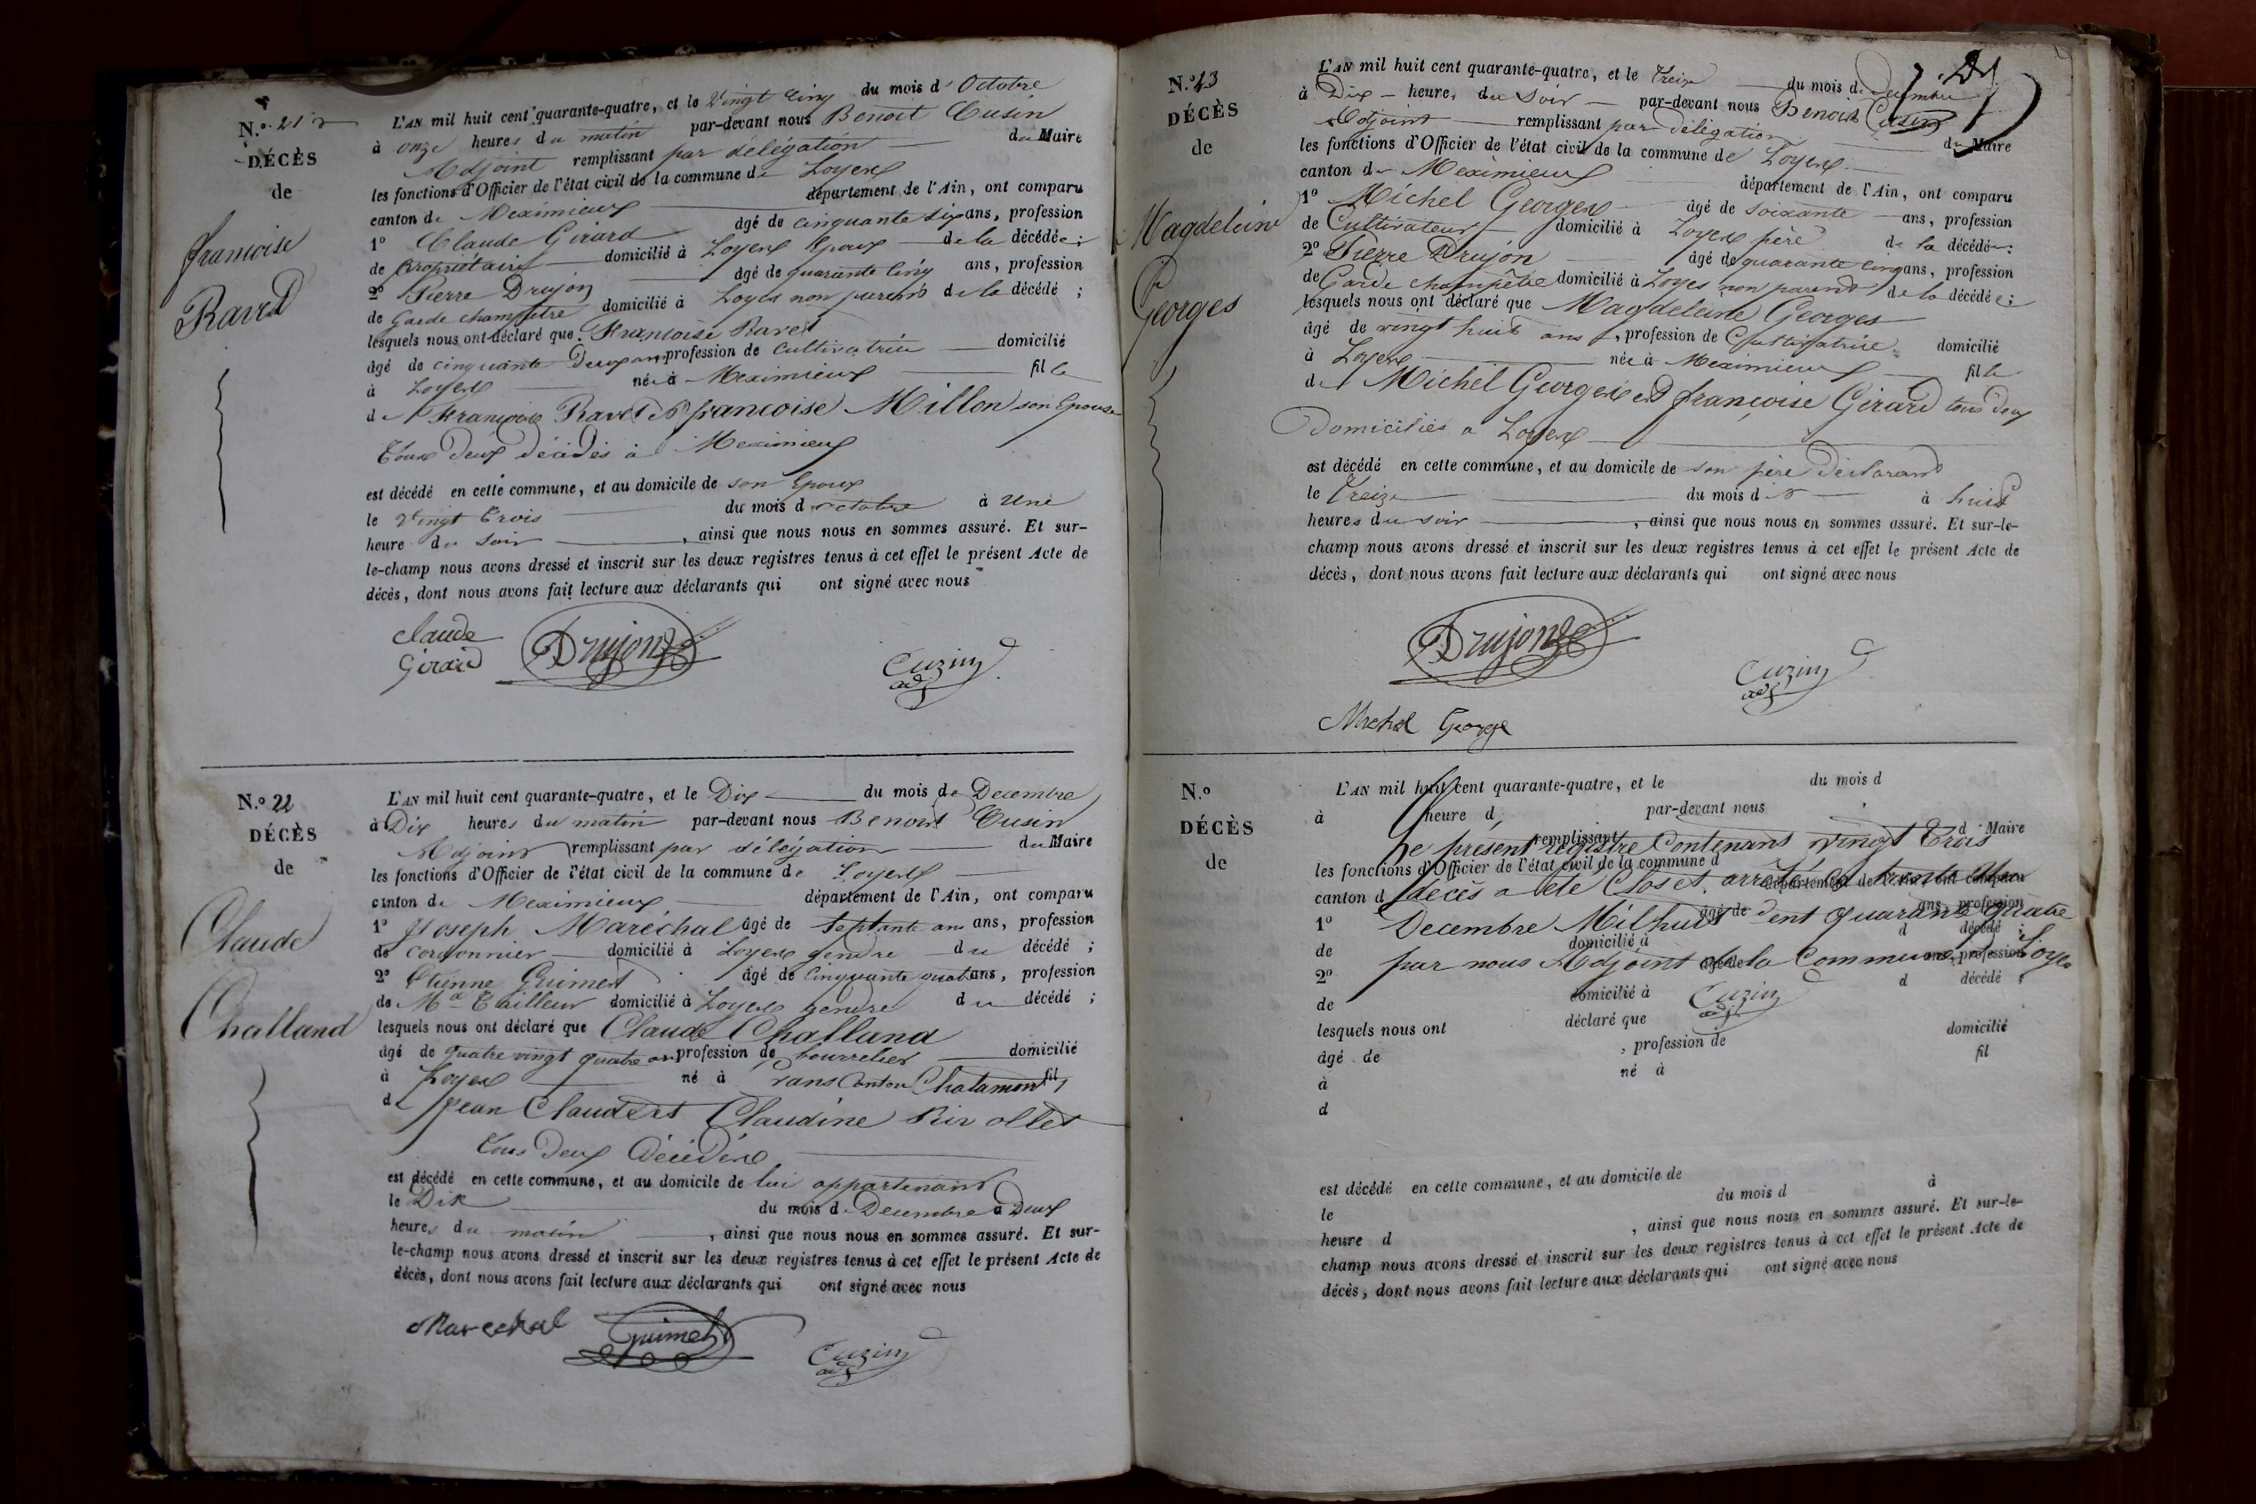 N.º 21
DÉCÈS
de
françoise
Ravet
L'AN mil huit cent quarante-quatre, et le Vingt Cinq du mois d'Octobre
à onze heures du matin par-devant nous Benoit Cusin
Adjoint remplissant par délégation du Maire
les fonctions d'Officier de l'état civil de la commune de Loyes
canton de Meximieux département de l'Ain, ont comparu
1º Claude Girard âgé de cinquante six ans, profession
de Propriétaire domicilié à Loyes Epoux de la décédée;
2º Pierre Drujon âgé de quarante cinq ans, profession
de Garde champêtre domicilié à Loyes non parent de la décédé ;
lesquels nous ont déclaré que Françoise Ravet
âgé de cinquante Deux ans profession de cultivatrice domicilié
à Loyes née à Meximieux fille
de François Ravet et françoise Millon son Epouse
Tous Deux décédés à Meximieux
est décédé en cette commune, et au domicile de son Epoux
le Vingt Trois du mois d'octobre à Une
heure du Soir , ainsi que nous nous en sommes assuré. Et sur-
le-champ nous avons dressé et inscrit sur les deux registres tenus à cet effet le présent Acte de
décès, dont nous avons fait lecture aux déclarants qui ont signé avec nous
Claude
Girard
Drujon
Cuzin
adj
N.º 22
DÉCÈS
de
Claude
Challand
L'AN mil huit cent quarante-quatre, et le Dix du mois de Decembre
à Dix heures du matin par-devant nous Benoit Cusin
Adjoint remplissant par délégation du Maire
les fonctions d'Officier de l'état civil de la commune de Loyes
canton de Meximieux département de l'Ain, ont comparu
1º Joseph Maréchal âgé de septante ans ans, profession
de cordonnier domicilié à Loyes gendre du décédé ;
2º Etienne Guimet âgé de Cinquante quat ans, profession
de Md Tailleur domicilié à Loyes gendre du décédé ;
lesquels nous ont déclaré que Claude Challand
âgé de quatre vingt quatre ans profession de bourrelier domicilié
à Loyes né à Rans Canton Chalamont fil
de Jean Claude et Claudine Rivollet
Tous Deux Décédés
est décédé en cette commune, et au domicile de lui appartenant
le Dix du mois de Decembre à Deux
heures du matin , ainsi que nous nous en sommes assuré. Et sur-
le-champ nous avons dressé et inscrit sur les deux registres tenus à cet effet le présent Acte de
décès, dont nous avons fait lecture aux déclarants qui ont signé avec nous
Marechal
Guimet
Cuzin
adj
N.º 23
DÉCÈS
de
Magdeleine
Georges
L'AN mil huit cent quarante-quatre, et le Treize du mois de Decembre
à Dix heures du Soir par-devant nous Benoit Cusin
Adjoint remplissant par délégation du Maire
les fonctions d'Officier de l'état civil de la commune de Loyes
canton de Meximieux département de l'Ain, ont comparu
1º Michel Georges âgé de soixante ans, profession
de Cultivateur domicilié à Loyes père de la décédée;
2º Pierre Drujon âgé de quarante cinq ans, profession
de Garde champêtre domicilié à Loyes non parent de la décédée;
lesquels nous ont déclaré que Magdeleine Georges
âgé de vingt huit ans , profession de Cultivatrice domicilié
à Loyes née à Meximieux fille
de Michel Georges et françoise Girard tous deux
Domiciliés a Loyes
est décédé en cette commune, et au domicile de son père Déclarant
le Treize du mois d à huit
heures du soir , ainsi que nous nous en sommes assuré. Et sur-le-
champ nous avons dressé et inscrit sur les deux registres tenus à cet effet le présent Acte de
décès, dont nous avons fait lecture aux déclarants qui ont signé avec nous
Drujon
Cuzin
adj
Michel George
N.º
DÉCÈS
de
L'AN mil huit cent quarante-quatre, et le du mois d
à heure d par-devant nous
remplissant d Maire
Le présent registre Contenant Vingt Trois
les fonctions d'Officier de l'état civil de la commune d
canton d département de l'Ain, ont comparu
decès a été Clos et arrêté le trente Un
1º âgé de ans, profession
Decembre Mil huit Cent quarante quatre
de domicilié à d décédé ;
par nous Adjoint de la Commune de Loyes
2º âgé de ans, profession
de domicilié à d décédé ;
Cuzin
adj
lesquels nous ont déclaré que
âgé de , profession de domicilié
à né à fil
d
est décédé en cette commune, et au domicile de
le du mois d à
heure d , ainsi que nous nous en sommes assuré. Et sur-le-
champ nous avons dressé et inscrit sur les deux registres tenus à cet effet le présent Acte de
décès, dont nous avons fait lecture aux déclarants qui ont signé avec nous